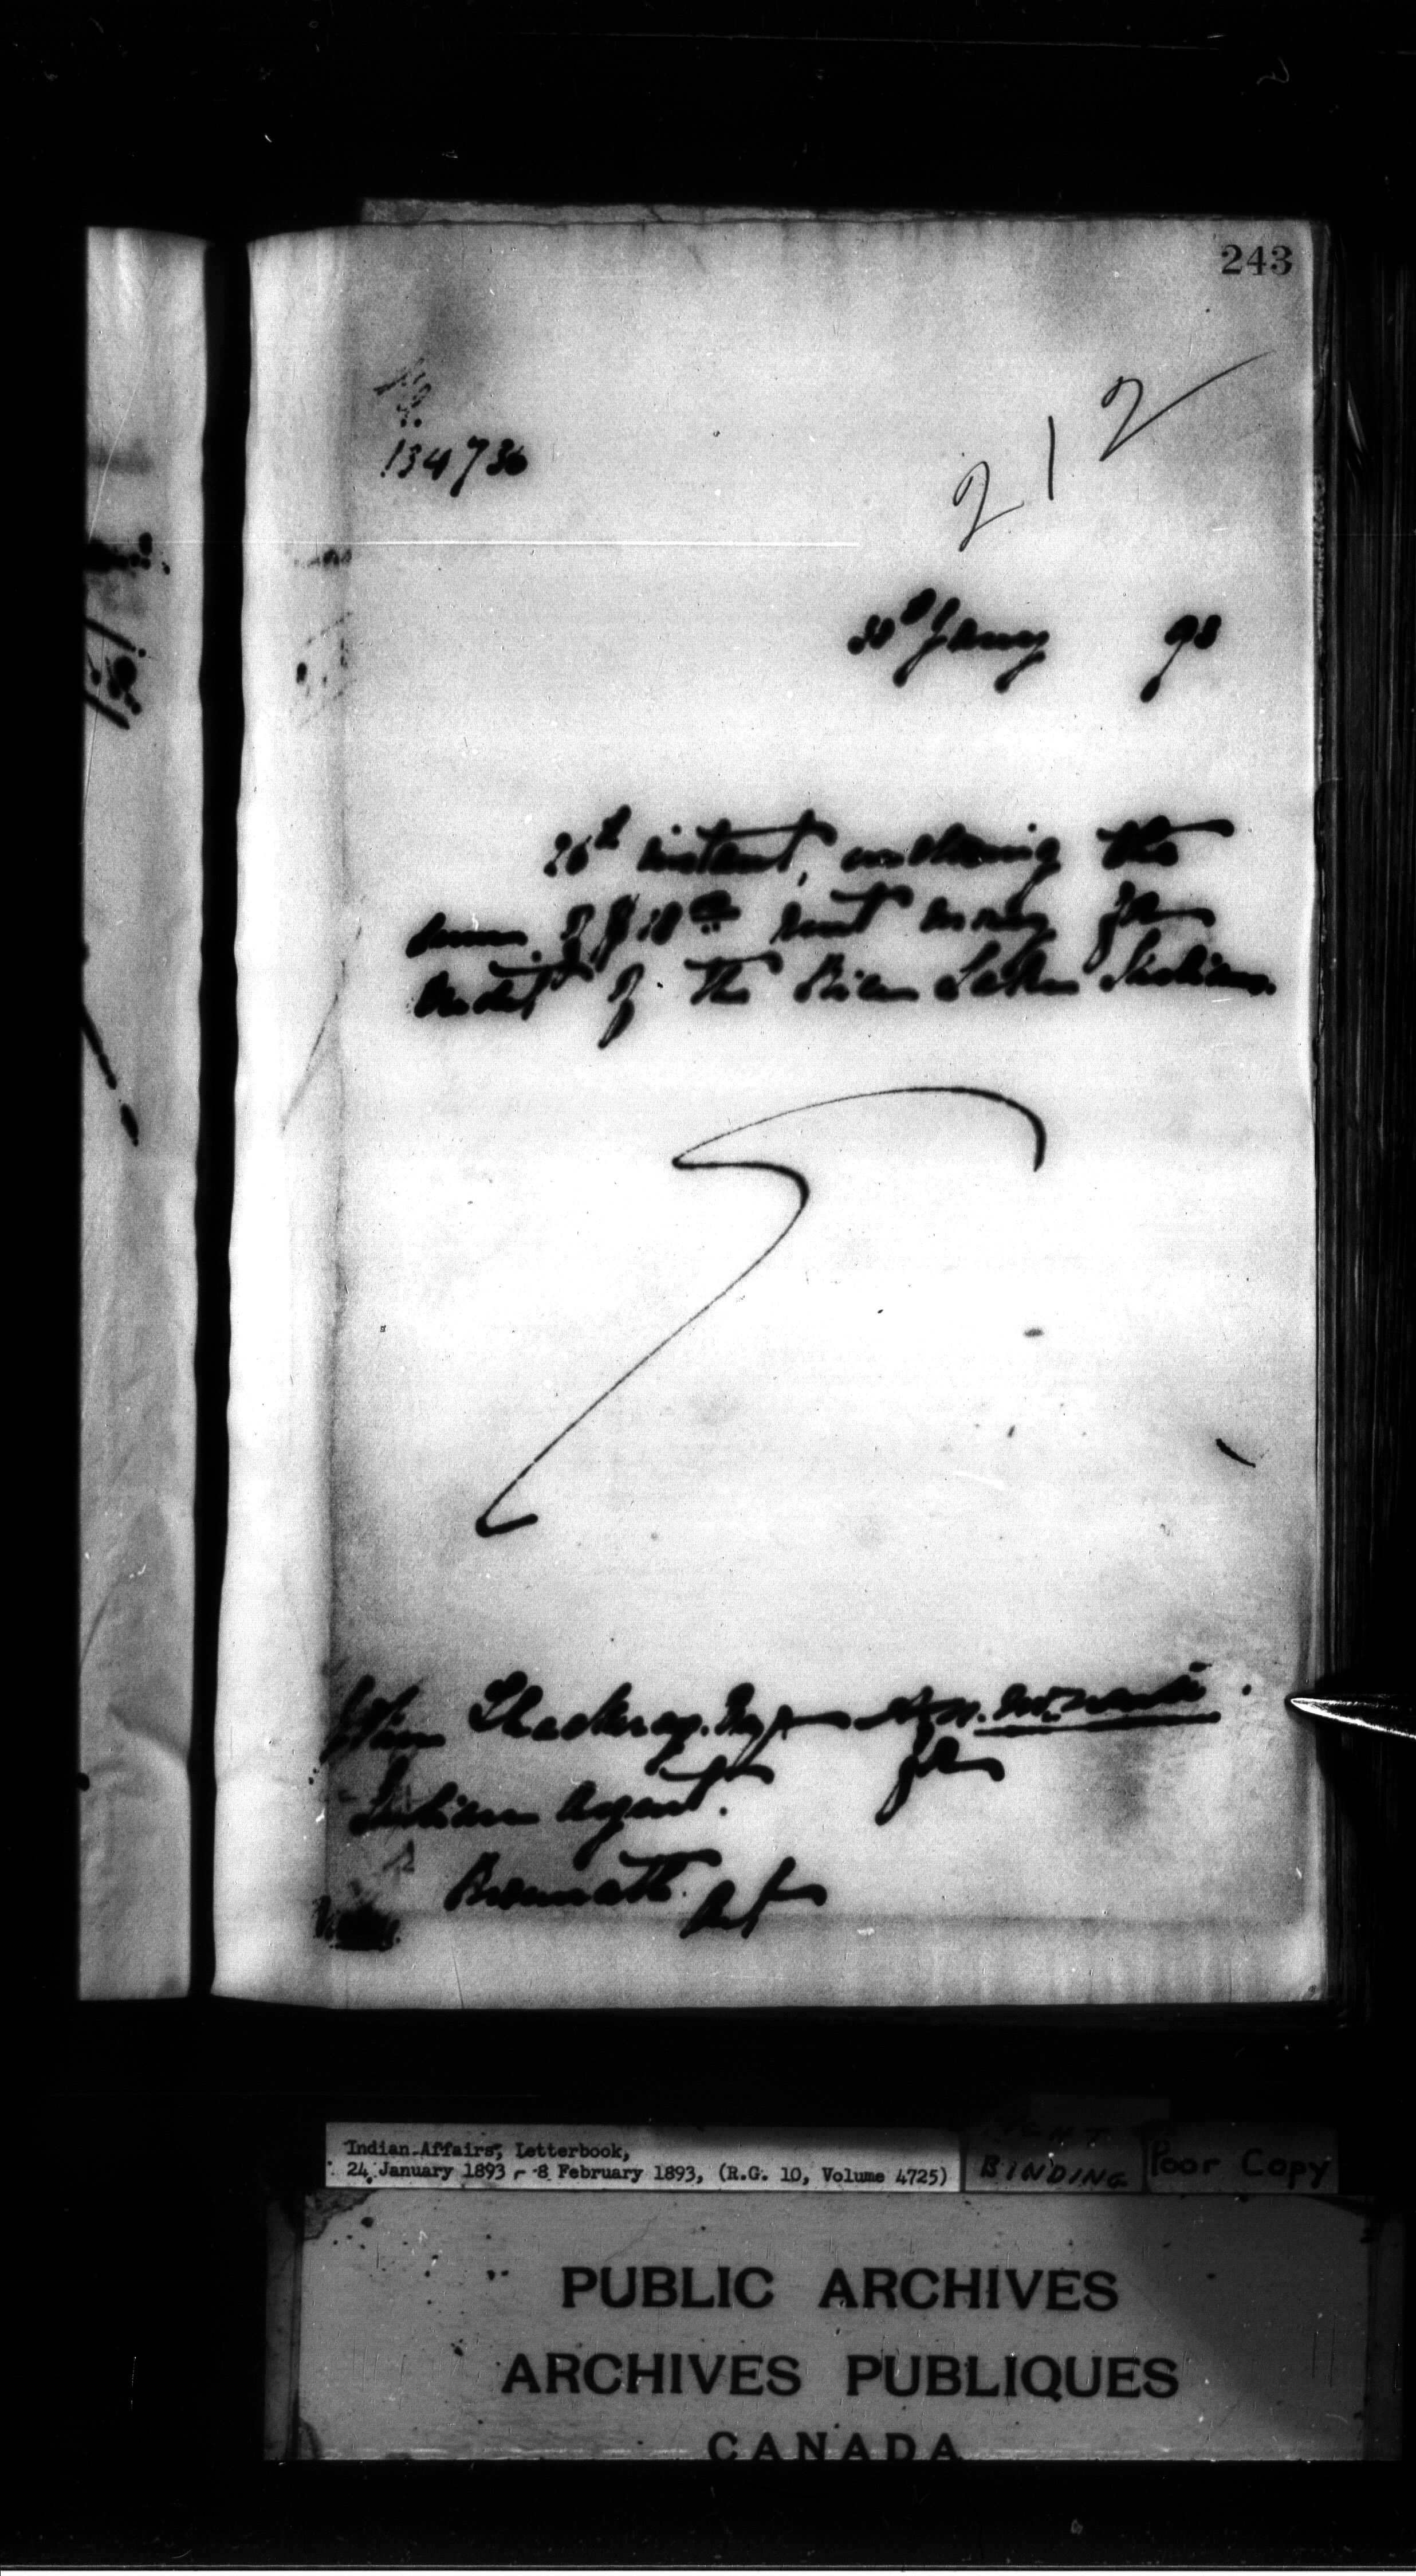 243
134736
212
30th Jany 93
26th instant, enclosing the
sum of $18.00 rent money for
credit of the Rice Lake Indians.
John Thackeray. Esq
Indian Agent.
for
Roseneath. Ont
Indian Affairs, Letterbook,
24 January 1893 - 8 February 1893, (R.G. 10, Volume 4725)
BINDING
Poor Copy
PUBLIC ARCHIVES
ARCHIVES PUBLIQUES
CANADA